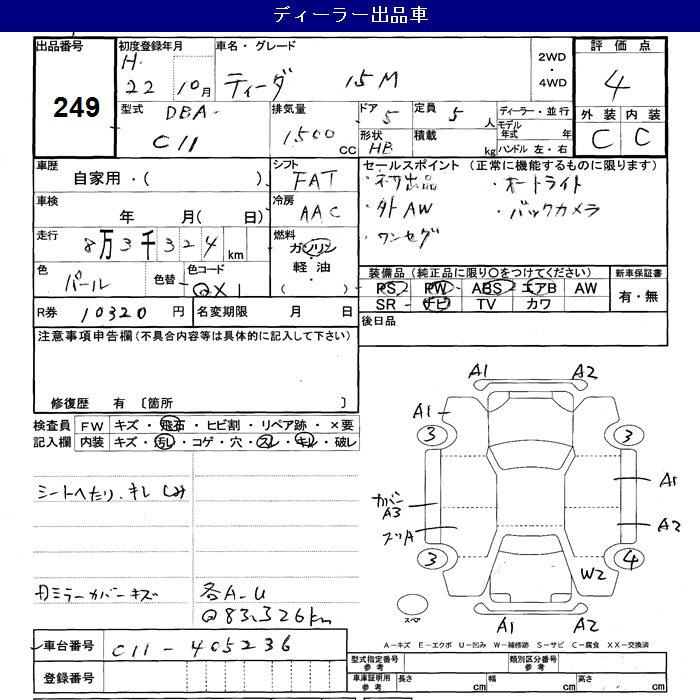 ディーラー出品車
出品番号 249
初度登録年月 H. 22 10月
車名・グレード ティーダ 15M
2WD・4WD
評価点 4
外装 内装
C C
型式 DBA- C11
排気量 1500 CC
ドア 5
定員 5 人
形状 HB
積載 kg
ディーラー・並行
モデル年式 年
ハンドル 左・右
車歴 自家用・( )
シフト FAT
車検 年 月( 日)
冷房 AAC
走行 8万3千324km
燃料 ガソリン 軽油・( )
色 パール
色替
色コード QX1
R券 10320円
名変期限 月 日
セールスポイント (正常に機能するものに限ります)
・初出品 ・オートライト
・外AW ・バックカメラ
・ワンセグ
装備品(純正品に限り〇をつけてください)
新車保証書
PS PW ABS エアB AW
SR ナビ TV カワ
有・無
後日品
注意事項申告欄(不具合内容等は具体的に記入して下さい)
修復歴 有 〔箇所 〕
検査員記入欄
FW キズ・飛石・ヒビ割・リペア跡・×要
内装 キズ・汚レ・コゲ・穴・スレ・キレ・破レ
シートへたり、キレ しみ
カミラーカバーキズ 各A-U
Q83,326km
A1 A2
A1
3 3
カバーA3 A1
A2
3 4
W2
スペア
A1 A2
A-キズ E-エクボ U-凹み W-補修跡 S-サビ C-腐食 XX-交換済
車台番号 C11-405236
登録番号
型式指定番号 参考
類別区分番号 参考
車庫証明用 参考 長さ cm 幅 cm 高さ cm